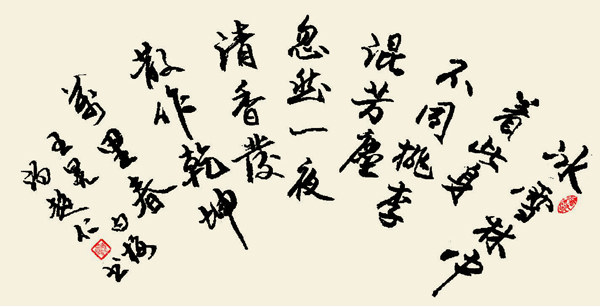 冰雪林中
着此身
不同桃李
混芳塵
忽然一夜
清香發
散作乾坤
萬里春
王冕白梅